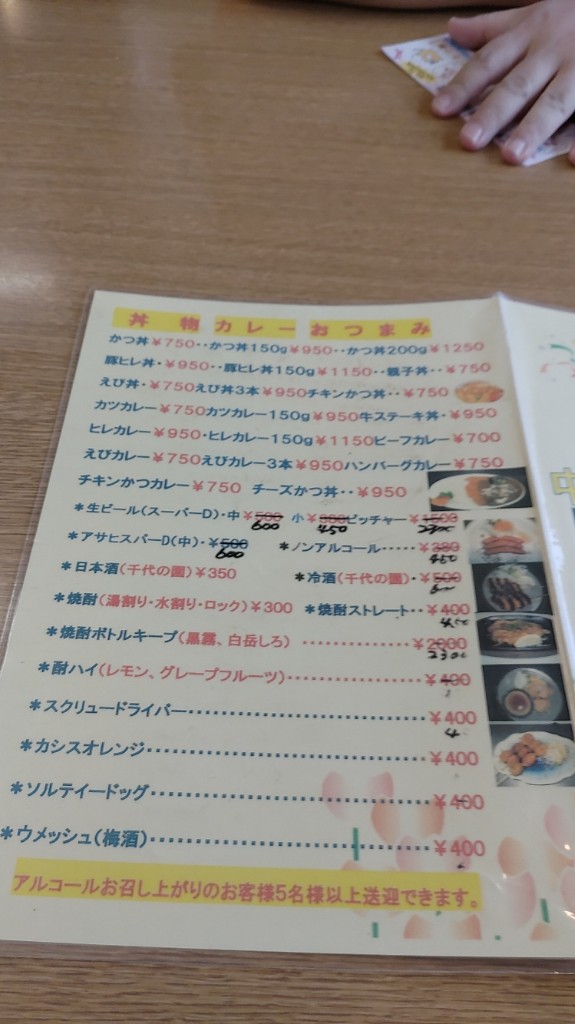 丼 物 カレー おつまみ
かつ丼￥750‥かつ丼150g￥950‥かつ丼200g￥1250
豚ヒレ丼・￥950‥豚ヒレ丼150g￥1150‥親子丼‥￥750
えび丼・￥750えび丼3本￥950チキンかつ丼‥￥750
カツカレー￥750カツカレー150g￥950牛ステーキ丼・￥950
ヒレカレー￥950・ヒレカレー150g￥1150ビーフカレー￥700
えびカレー￥750えびカレー3本￥950ハンバーグカレー￥750
チキンかつカレー￥750 チーズかつ丼‥￥950
＊生ビール(スーパーD)・中￥500 小￥380ピッチャー￥1500
600 450 2300
＊アサヒスパーD(中)・￥500 ＊ノンアルコール‥‥‥￥380
600 450
＊日本酒(千代の園)￥350 ＊冷酒(千代の園)・￥500
＊焼酎(湯割り・水割り・ロック)￥300 ＊焼酎ストレート‥￥400
＊焼酎ボトルキープ(黒霧、白岳しろ) ‥‥‥‥‥‥￥2000
2300
＊酎ハイ(レモン、グレープフルーツ)‥‥‥‥‥‥￥400
＊スクリュードライバー‥‥‥‥‥‥‥‥‥‥￥400
＊カシスオレンジ‥‥‥‥‥‥‥‥‥‥‥‥￥400
＊ソルテイードッグ‥‥‥‥‥‥‥‥‥‥‥‥￥400
＊ウメッシュ(梅酒)‥‥‥‥‥‥‥‥‥‥‥‥￥400
アルコールお召し上がりのお客様5名様以上送迎できます。